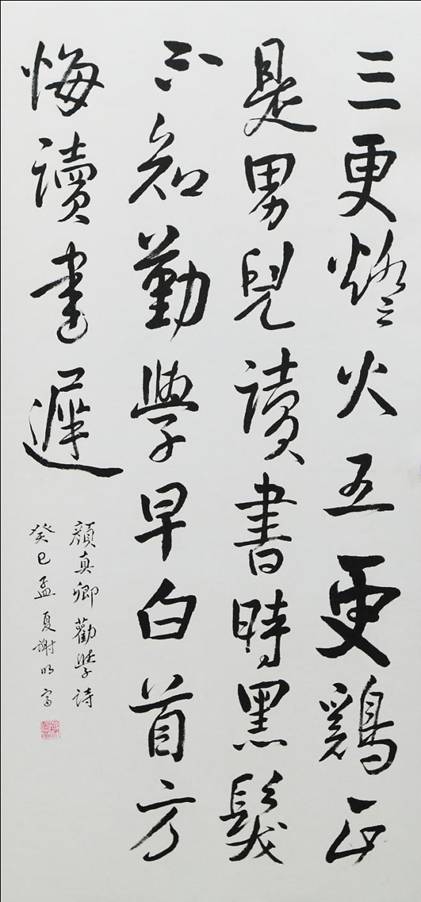 三更燈火五更鷄正
是男兒讀書時黑髮
不知勤學早白首方
悔讀書遲
顏真卿勸學詩
癸巳孟夏謝明富